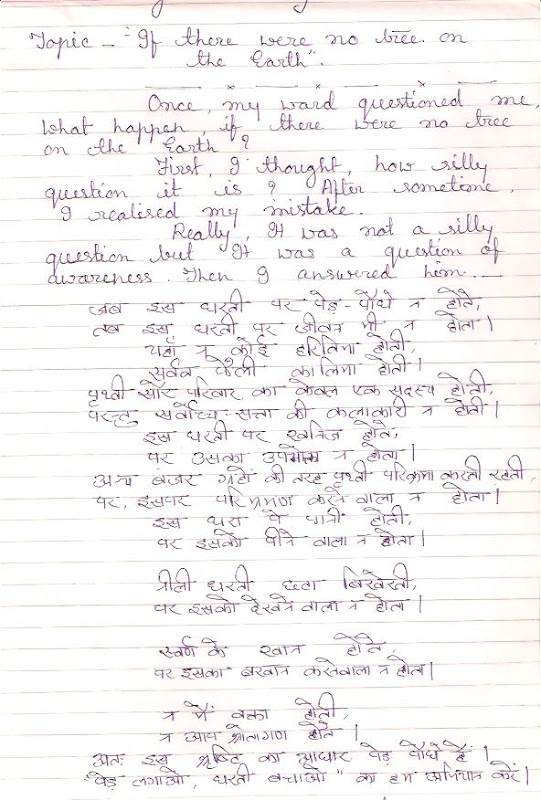 Topic - "If there were no tree on
the Earth".
Once, my ward questioned me,
What happen, if there were no tree
on the Earth ?
First, I thought, how silly
question it is ? After sometime,
I realised my mistake.
Really, It was not a silly
question but It was a question of
awareness. Then I answered him. ...
जब इस धरती पर पेड़-पौधे न होते,
तब इस धरती पर जीवन भी न होता।
यहाँ न कोई हरितिमा होती,
सर्वत्र फैली कालिमा होती।
पृथ्वी सौर परिवार का केवल एक सदस्य होती,
परन्तु सर्वोच्च-सत्ता की कलाकारी न होती।
इस धरती पर खनिज होते,
पर उसका उपभोक्ता न होता।
अन्य बंजर ग्रहों की तरह पृथ्वी परिक्रमा करती रहती,
पर, इसपर परिभ्रमण करने वाला न होता।
इस धरा पे पानी होती,
पर इसको पीने वाला न होता।
नीली धरती छटा बिखेरती,
पर इसको देखने वाला न होता।
स्वर्ण के खान होते,
पर इसका बखान करनेवाला न होता।
न मैं वक्ता होती,
न आप श्रोतागण होते।
अतः इस श्रृष्टि का आधार पेड़ पौधे हैं।
"पेड़ लगाओ, धरती बचाओ" का हम अभियान करें।